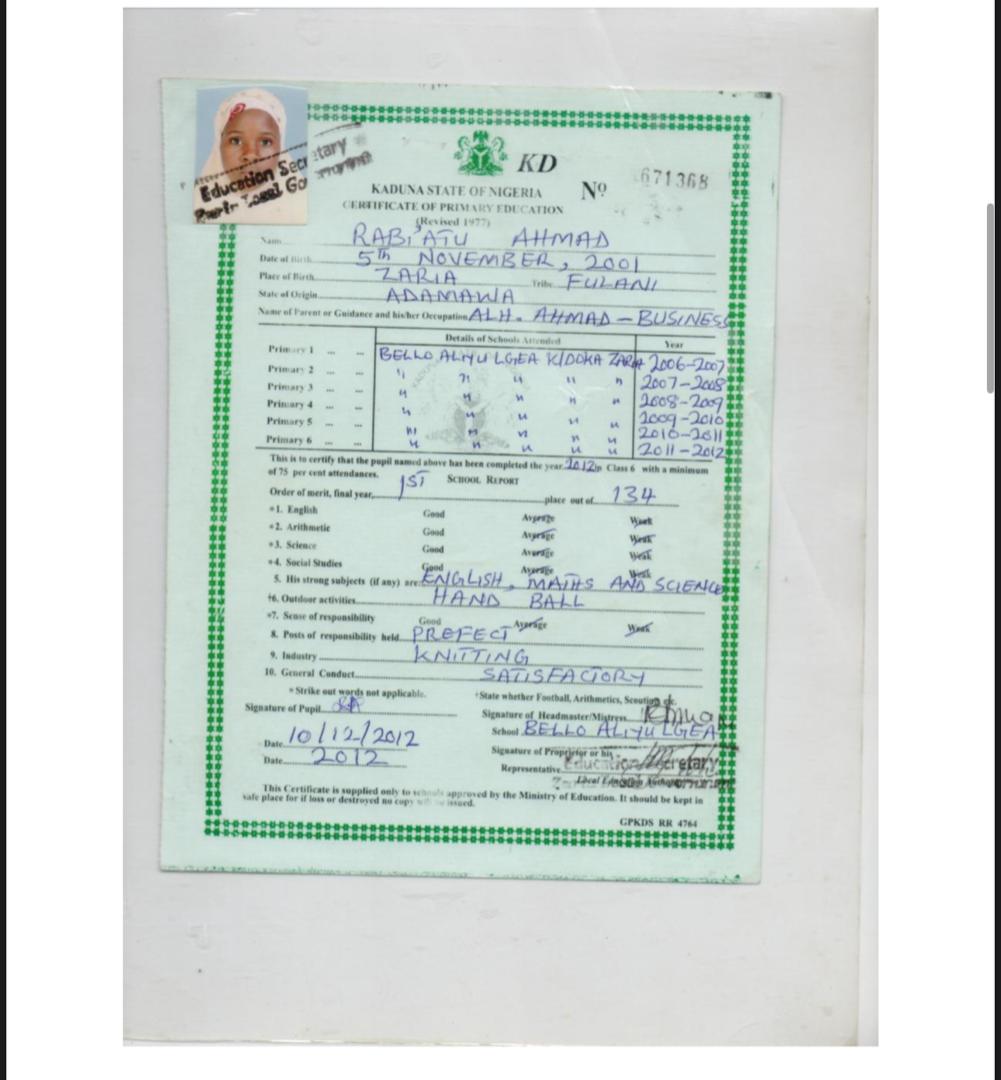 Education Secretary
KD
Nº 671368
KADUNA STATE OF NIGERIA
CERTIFICATE OF PRIMARY EDUCATION
(Revised 1977)
Name RABI'ATU AHMAD
Date of Birth 5th NOVEMBER, 2001
Place of Birth ZARIA Tribe FULANI
State of Origin ADAMAWA
Name of Parent or Guidance and his/her Occupation ALH. AHMAD - BUSINESS
Details of Schools Attended Year
Primary 1 ... ... BELLO ALIYU LGEA K/DOKA ZARIA 2006-2007
Primary 2 ... ... " " " " " 2007-2008
Primary 3 ... ... " " " " " 2008-2009
Primary 4 ... ... " " " " " 2009-2010
Primary 5 ... ... " " " " " 2010-2011
Primary 6 ... ... " " " " " 2011-2012
This is to certify that the pupil named above has been completed the year 2012 in Class 6 with a minimum
of 75 per cent attendances.
SCHOOL REPORT
Order of merit, final year, 1ST place out of 134
*1. English Good Average Weak
*2. Arithmetic Good Average Weak
*3. Science Good Average Weak
*4. Social Studies Good Average Weak
5. His strong subjects (if any) are: ENGLISH, MATHS AND SCIENCE
†6. Outdoor activities HAND BALL
*7. Sense of responsibility Good Average Weak
8. Posts of responsibility held PREFECT
9. Industry KNITTING
10. General Conduct SATISFACTORY
*Strike out words not applicable. †State whether Football, Arithmetics, Scouting etc.
Signature of Pupil
Signature of Headmaster/Mistress
School BELLO ALIYU LGEA
Date 10/12/2012
Date 2012
Signature of Proprietor or his
Representative
Education Secretary
This Certificate is supplied only to schools approved by the Ministry of Education. It should be kept in
safe place for if loss or destroyed no copy will be issued.
GPKDS RR 4764